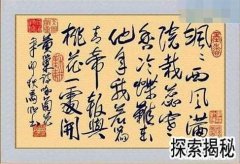 飒飒西风满
院栽蕊寒
香冷蝶難来
他年我若為
青帝報與
桃花一處開
黄巢詩
探索揭秘